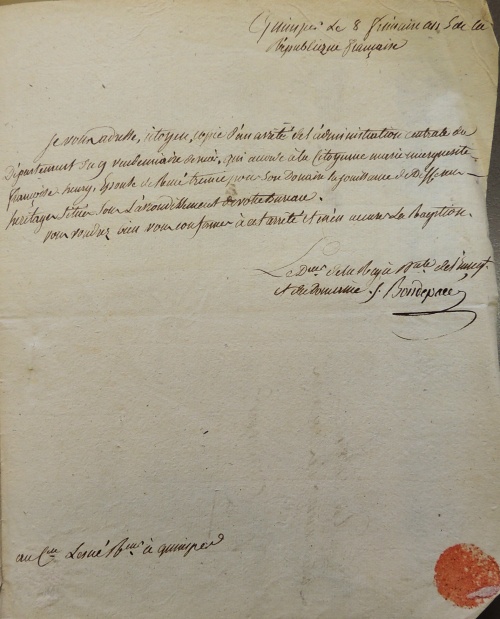 Quimper Le 8 frimaire an 5 de la
République française
Je vous adresse, citoyen, copie d'un arrêté de l'administration centrale du
Département du 9 vendemiaire dernier, qui accorde à la Citoyenne marie marguerite
françoise épouse de René pour son Domaine La jouissance de Differens
héritages situés sous L'arondissement de votre bureau.
vous voudrez bien vous conformer à cet arrêté et m'en accuser La Reception.
Le D.eur de la Régie N.ale de l'enregt.
et des domaines
au C.en Lesné R.eur à quimper